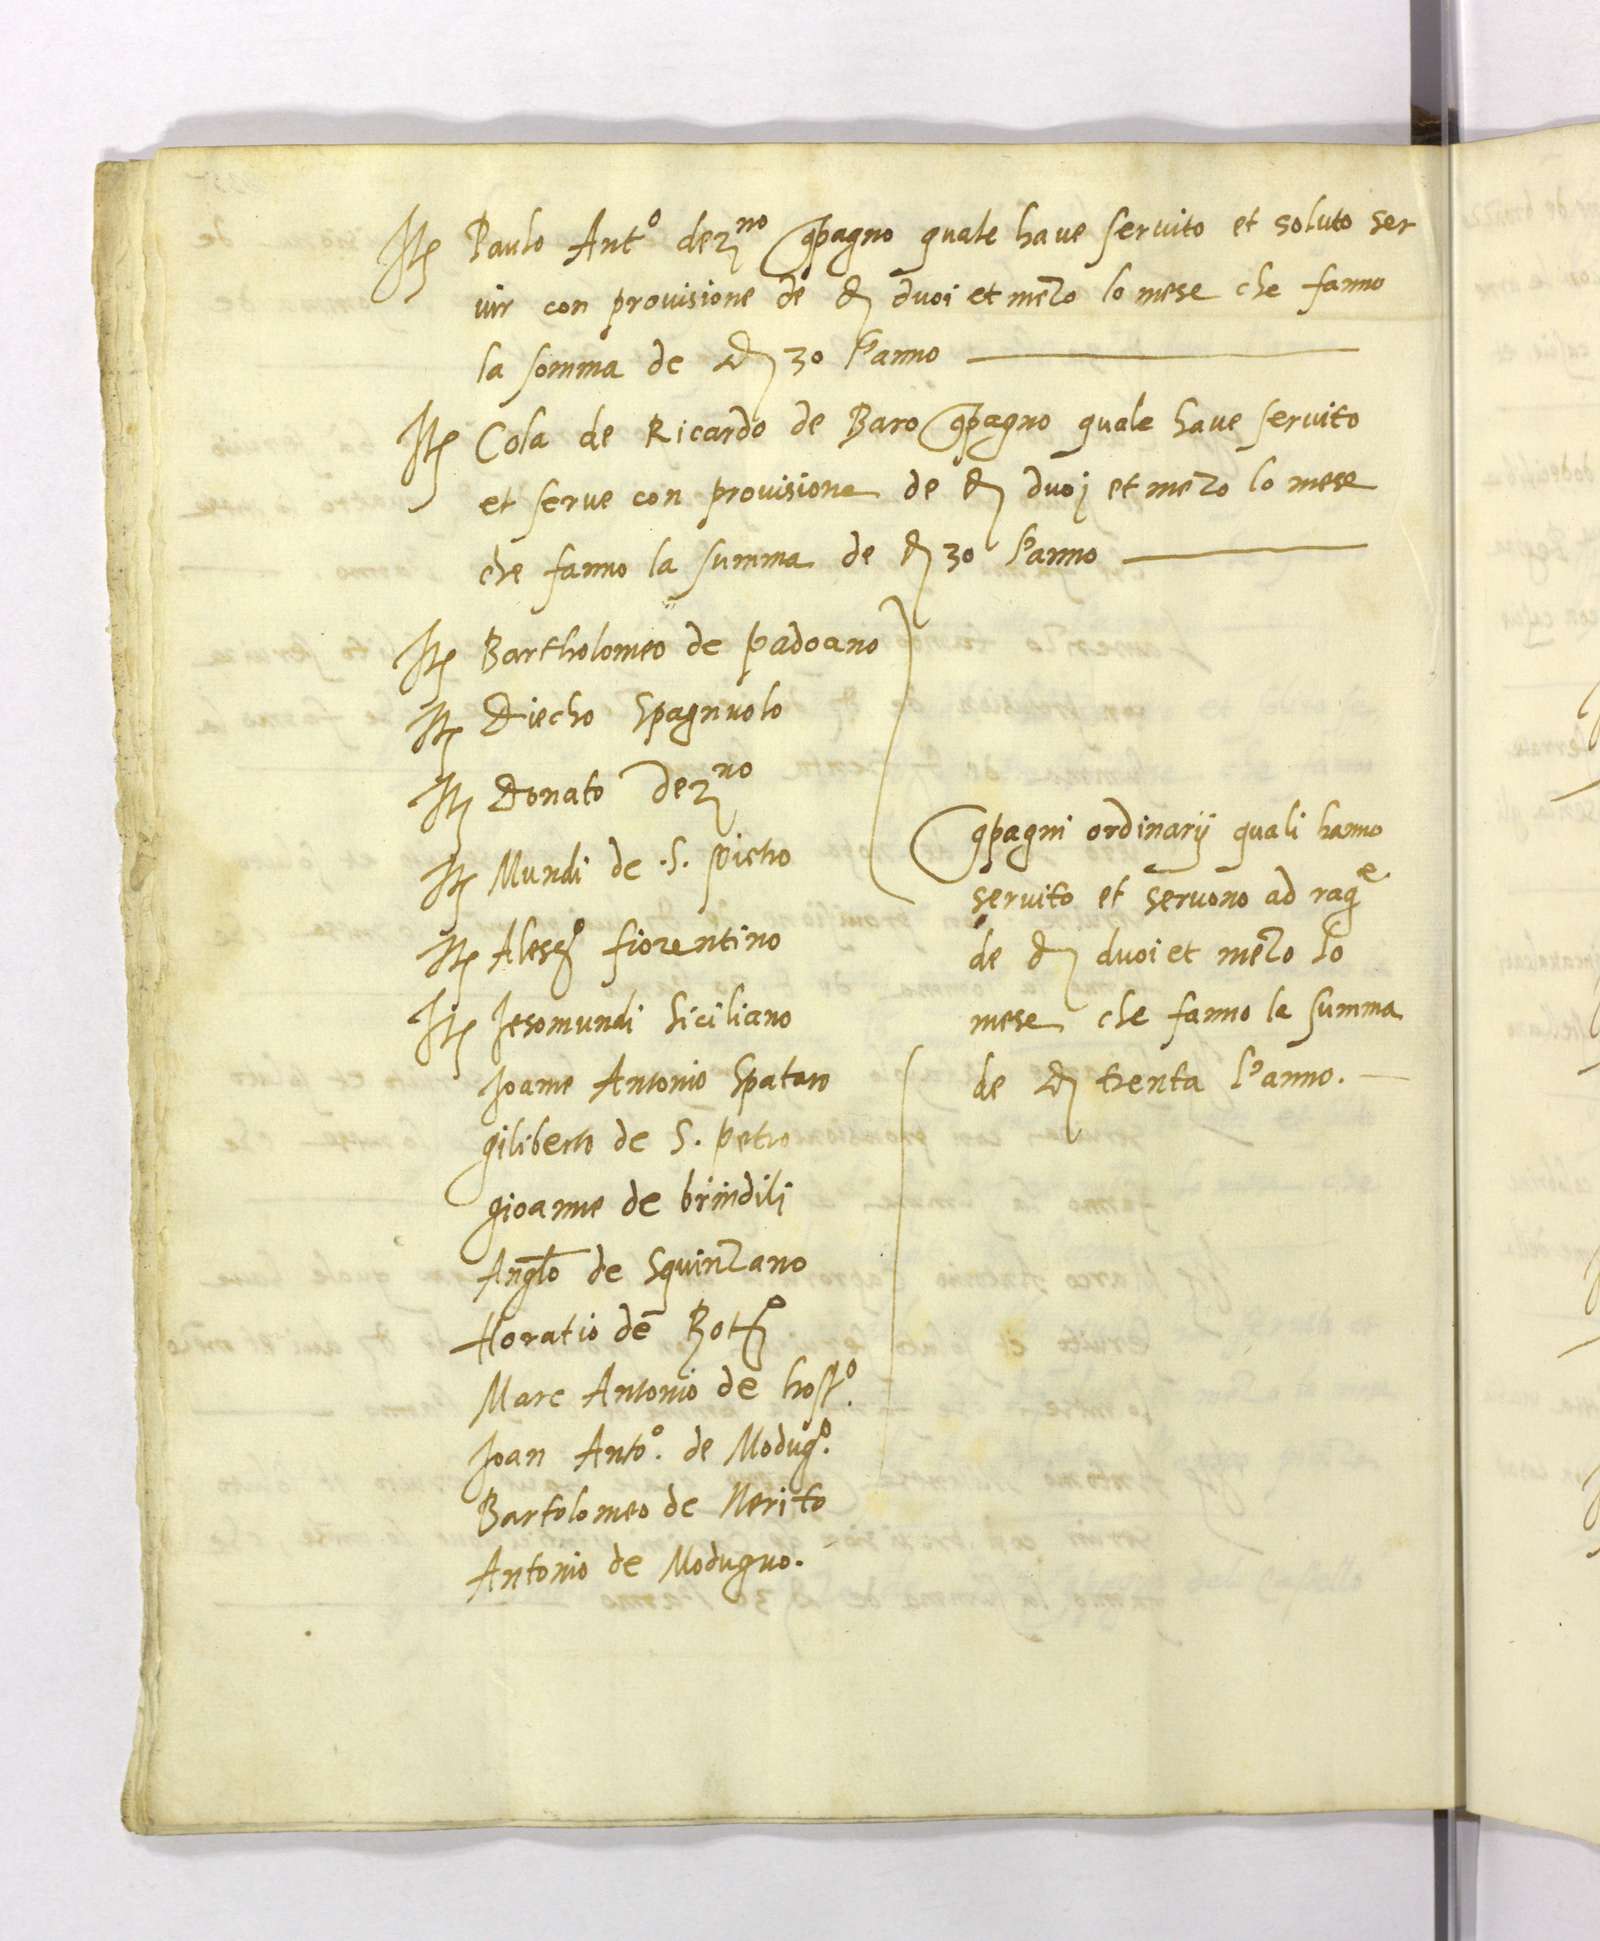 Itẽ Paulo Antº dez.no cõpagno quale have servito et soluto ser
vir con provisione de d. duoi et mezo lo mese che fanno
la somma de d. 30 l'anno
Itẽ Cola de Ricardo de Baro cõpagno quale have servito
et serve con provisione de d. duoj et mezo lo mese
che fanno la summa de d. 30 l'anno
Itẽ Bartholomeo de padoano
Itẽ Diecho Spagnuolo
Itẽ Donato dez.no
Itẽ Mundi de .S. Pietro
Itẽ Alesº fiorentino
Itẽ Jesomundi Siciliano
Joanne Antonio Spataro
giliberto de S. petro
gioanne de brindili
Anglo de Squinzano
Horatio de
Marc Antonio de hostº.
Joan Antoº. de Modugº.
Bartolomeo de Nerito
Antonio de Modugno.
cõpagni ordinarij quali hanno
servito et servono ad rage
de d. duoi et mezo lo
mese che fanno la summa
de d. trenta l'anno.